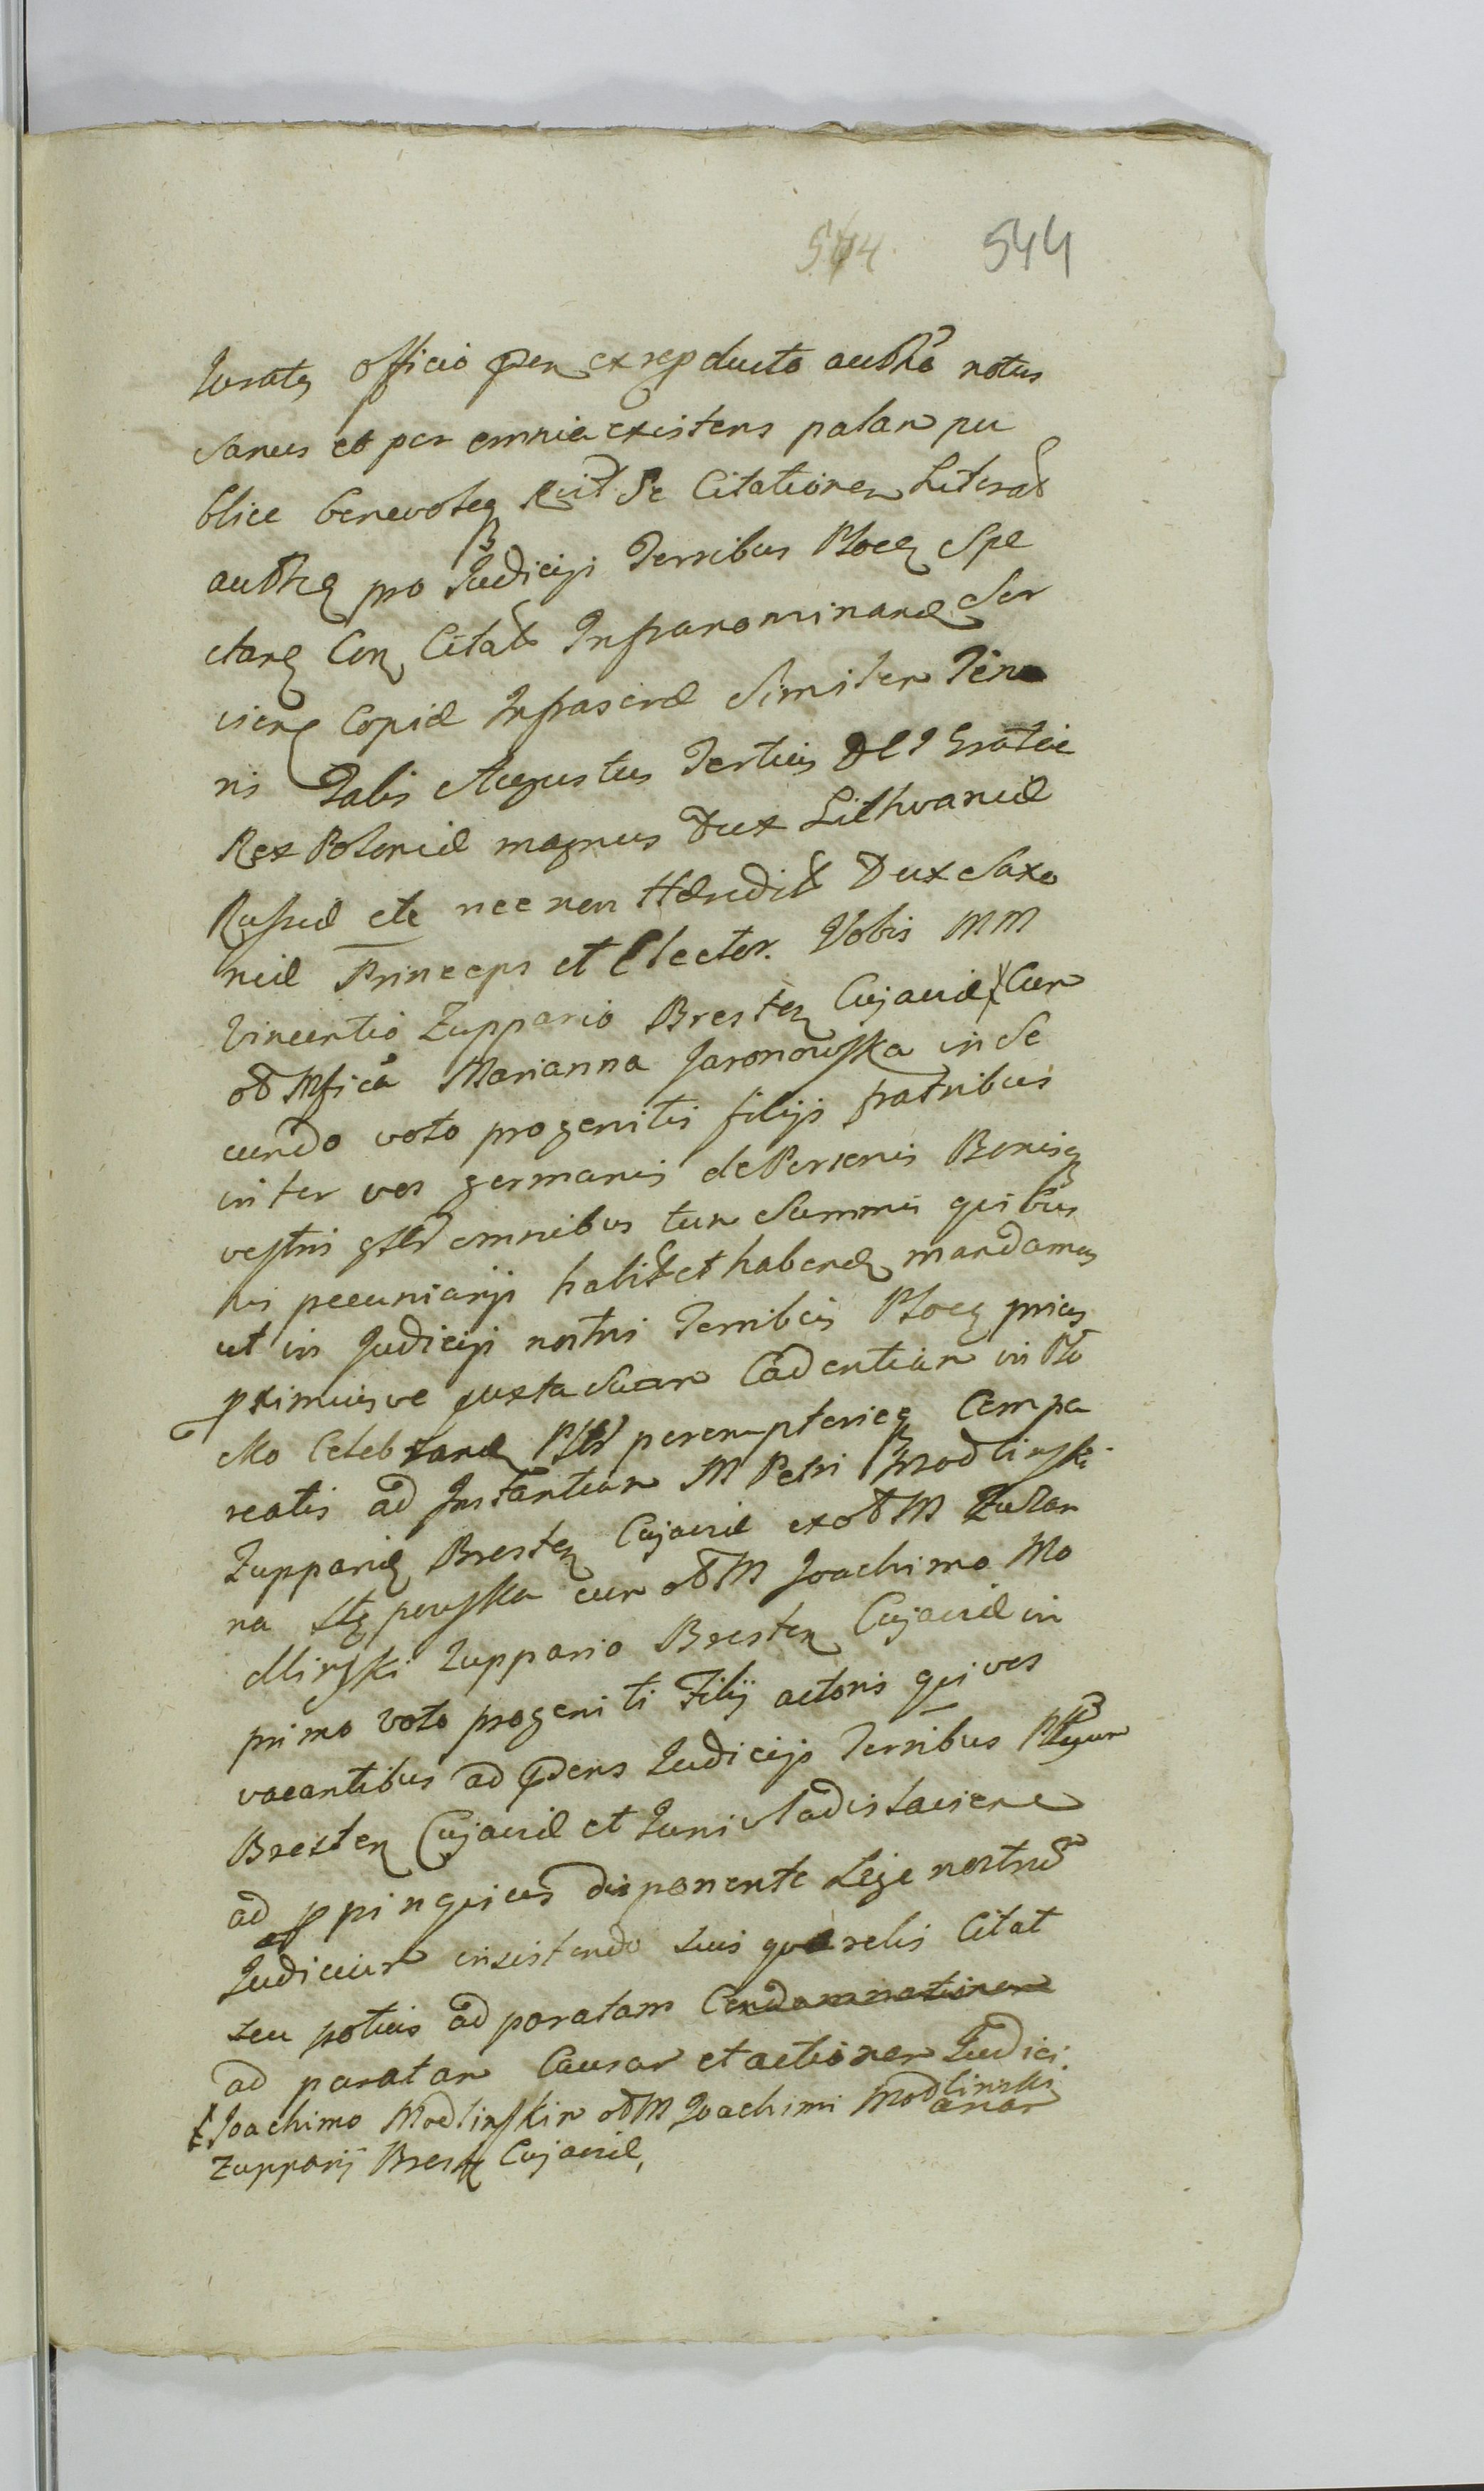 544 544
Juratq officio pen ex repducto autho notus
Sanus et per omnia existens palam pu
blice benevoleq Rcit Se Citationem Literat
authq pro Judicijs Terribus Plocen Spe
ctanq Con Citat Infranominand Ser
vienq Copiæ Infrascrd Similem Teno
ris Talis Augustus Tertius DEI Gratia
Rex Poloniæ magnus Dux Lithvaniæ
Russiæ etc nec non Hæredit Dux Saxo
niæ Princeps et Elector. Vobis MM
Vincentio Zuppario Bresten Cujaviæ Cum
ob Mfica Marianna Jaronowska in Se
cundo voto progenitis filijs fratribus
inter vos germanis de Personis Bonisq
vestris gnlr omnibus tum Summis quibus
vis pecuniarijs habit et habend mandamus
ut in Judicijs nostris Terribus Plocen prius
pximiusve juxta Suam Cadentiam in Plo
cko Celebrand Plr peremptorieq Compa
reatis ad Instantiam M Petri Modlinski
Zupparid Bresten Cujaviæ ex ob M Zuzan
na Stępowska cum ob M Joachimo Mo
dlinski Zuppario Bresten Cujaviæ in
primo voto progeniti Filij actoris qui vos
vacantibus ad pdens Judicijs Terribus
Bresten Cujaviæ et Juni Vladislavien
ad ppinquius disponente Lege nostrum
Judicium insistendo suis querelis Citat
seu potius ad paratam Condemnationem
ad paratam Causam et actionem Judici
Joachimo Modlinskim ob M Joachimi Modlinski
anam
Zupparij Brest Cujaviæ,